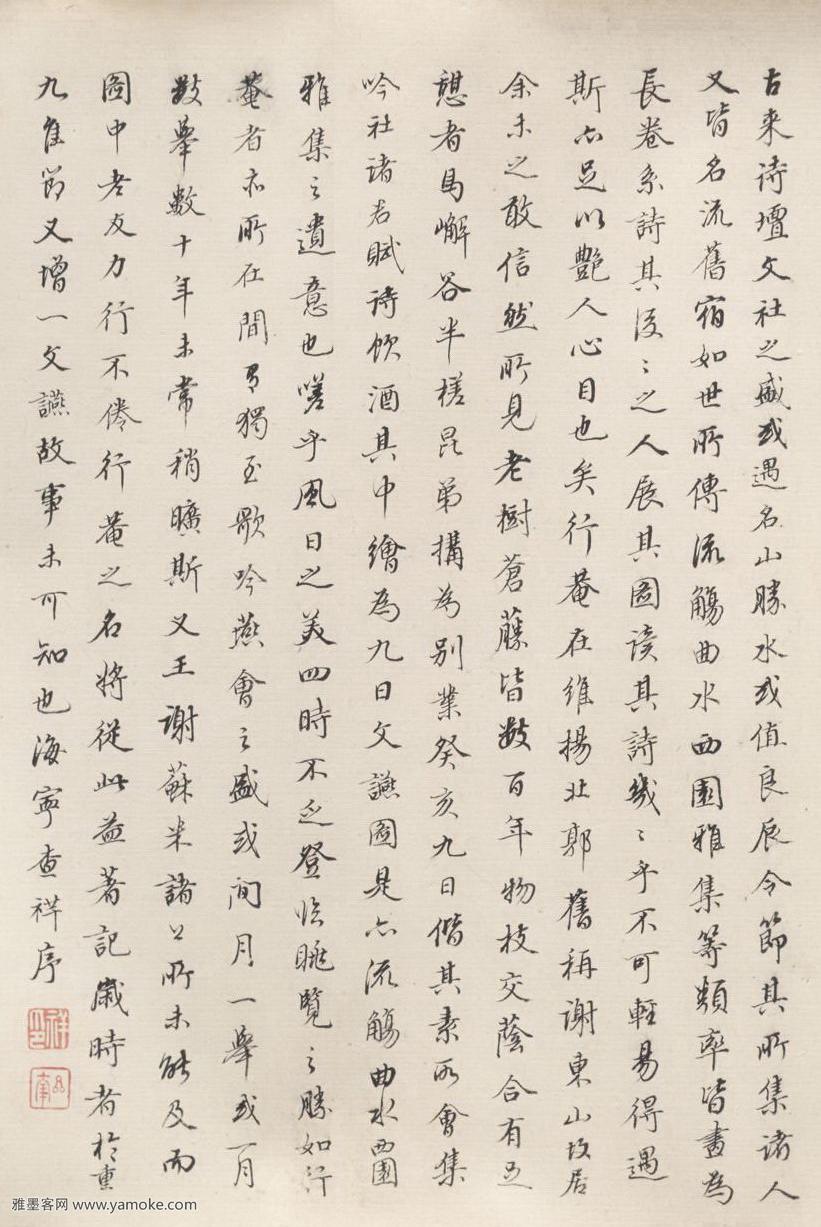 古来诗壇文社之盛或遇名山勝水或值良辰令節其所集诸人
又皆名流舊宿如世所傳流觴曲水西園雅集等類率皆畫為
長卷系詩其後後之人展其圖读其詩幾幾乎不可輕易得遇
斯亦足以艷人心目也矣行菴在维揚北郭舊稱謝東山故居
余未之敢信然所見老樹蒼藤皆數百年物枝交蔭合有足
憩者馬嶰谷半槎昆弟搆為别業癸亥九日偕其素所會集
吟社诸君賦诗饮酒其中繪為九日文讌圖是亦流觴曲水西園
雅集之遺意也嗟乎風日之美四時不乏登临眺覽之勝如行
菴者亦所在間有獨至歌吟燕會之盛或间月一舉或一月
數舉數十年未常稍曠斯又王謝蘇米諸公所未能及而
圖中老友力行不倦行菴之名将從此益著記歲時者於重
九佳節又增一文讌故事未可知也海寧查祥序
祥印
雅墨客网 www.yamoke.com